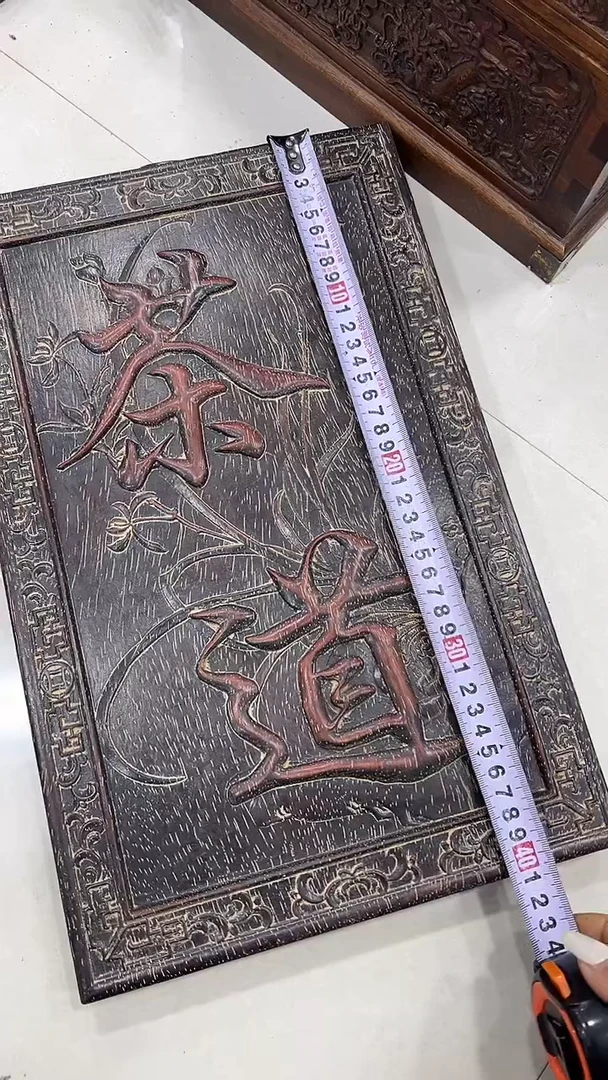 茶道
3 4 5 6 7 8 9 10 1 2 3 4 5 6 7 8 9 20 1 2 3 4 5 6 7 8 9 30 1 2 3 4 5 6 7 8 9 40 1 2 3 4